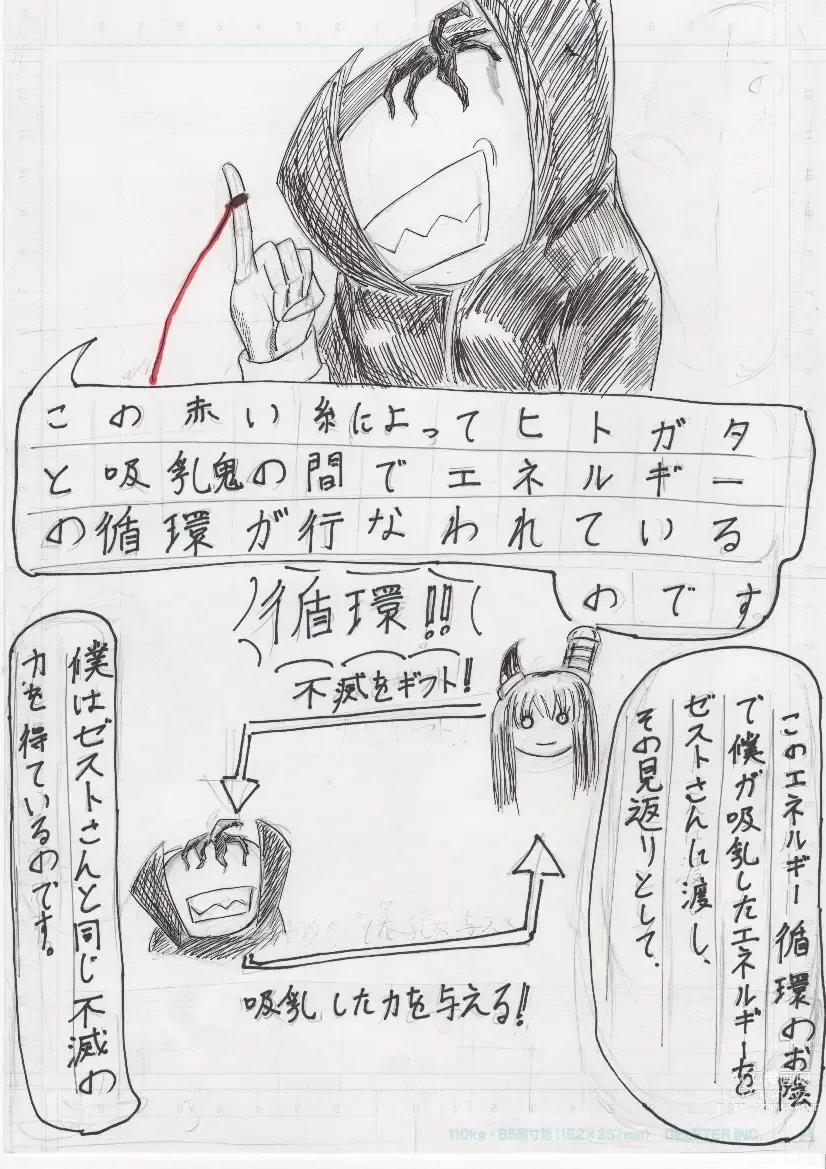 この赤い糸によってヒトガタ
と吸乳鬼の間でエネルギー
の循環が行なわれている
のです。
循環!!
不滅をギフト!
このエネルギー循環のお陰
で僕が吸乳したエネルギーを
ゼストさんに渡し、
その見返りとして、
吸乳した力を与える!
僕はゼストさんと同じ不滅の
力を得ているのです。
110kg・B5原寸用(182×257mm) DELETER INC.